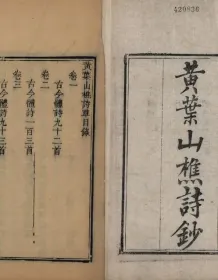 黃葉山樵詩鈔
黃葉山樵詩草目錄
卷一
古今體詩九十二首
卷二
古今體詩九十二首
卷三
古今體詩一百三首